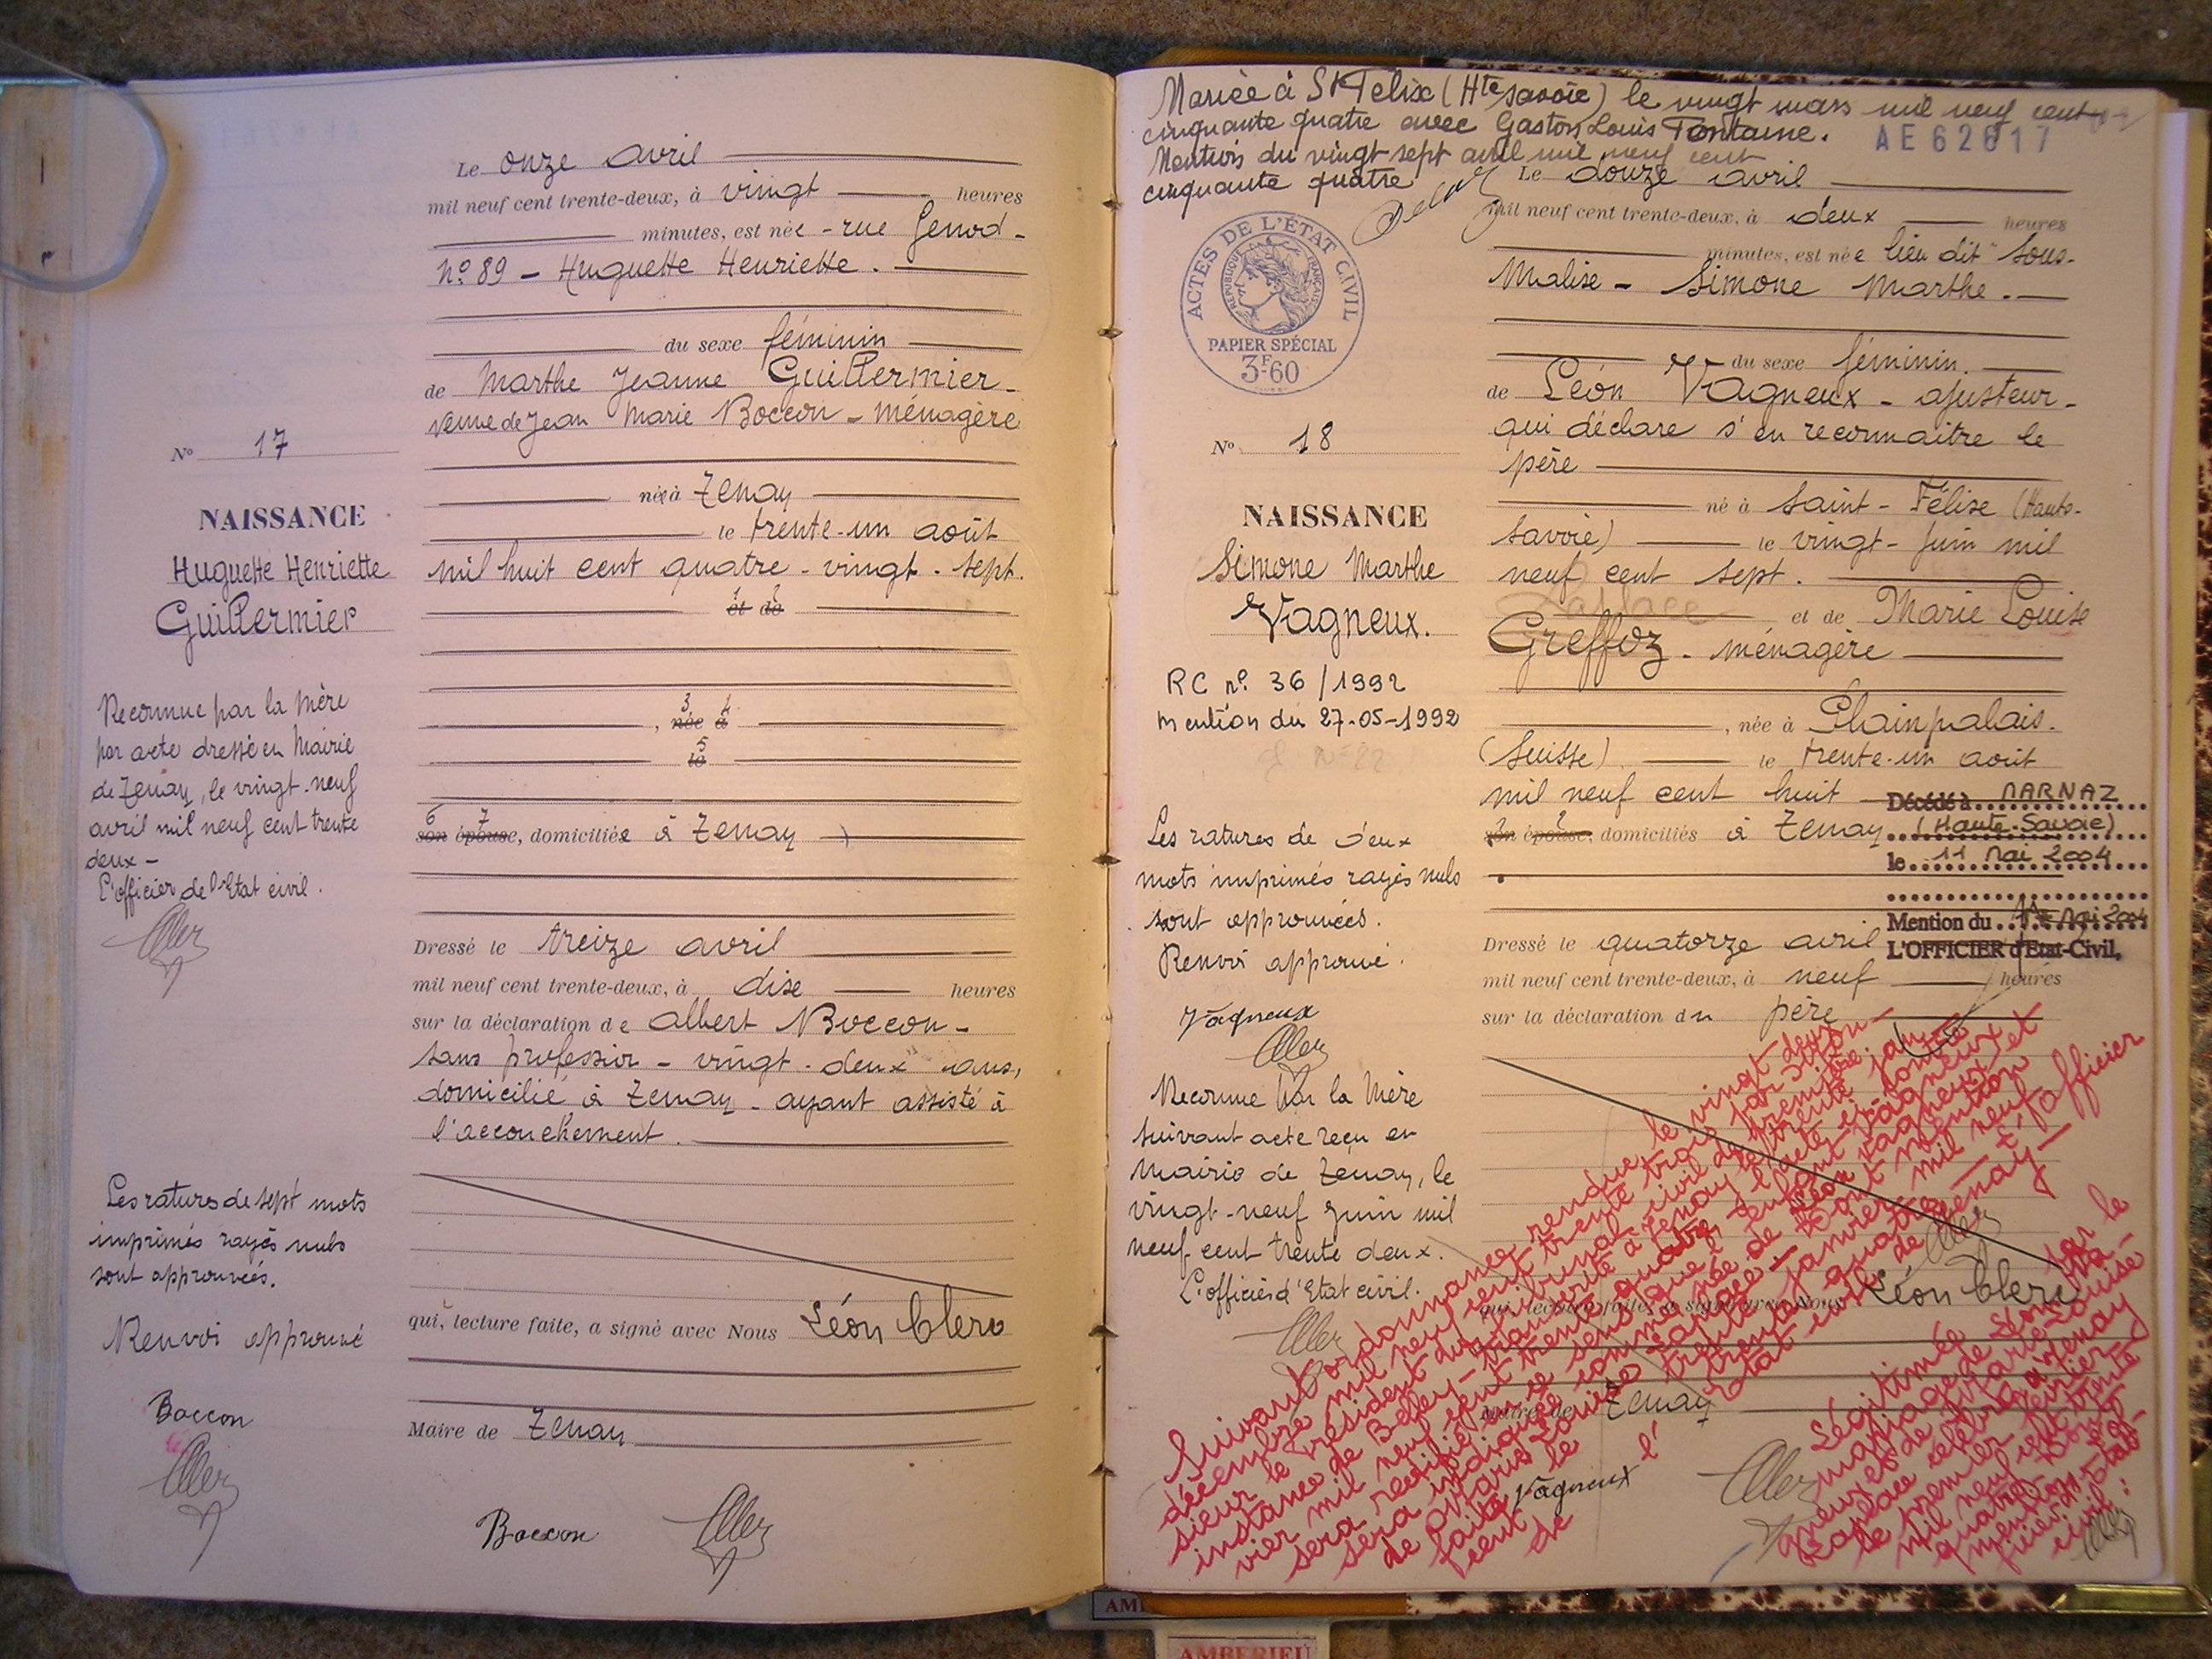 Le onze avril
mil neuf cent trente-deux, à vingt heures
minutes, est née - rue Genod -
N° 89 - Huguette Henriette.
du sexe féminin
de Marthe Jeanne Guillermier -
veuve de Jean Marie Boccon - ménagère
N° 17
née à Tenay
NAISSANCE
le trente-un août
Huguette Henriette
mil huit cent quatre-vingt-sept.
Guillermier
1 2
et de
Reconnue par la mère
par acte dressé en Mairie
de Tenay, le vingt-neuf
avril mil neuf cent trente
deux -
L'officier de l'Etat civil.
3 4
, née à
5
le
6 7
son épouse, domiciliée à Tenay
Dressé le treize avril
mil neuf cent trente-deux, à dise heures
sur la déclaration de Albert Boccon -
sans profession - vingt-deux ans,
domicilié à Tenay - ayant assisté à
l'accouchement.
Les ratures de sept mots
imprimés rayés nuls
sont approuvées.
Renvoi approuvé
qui, lecture faite, a signé avec Nous Léon Clerc
Boccon
Maire de Tenay
Boccon
Mariée à St Félix (Hte Savoie) le vingt mars mil neuf cent
cinquante quatre avec Gaston Louis Fontaine.
Mention du vingt-sept avril mil neuf cent
cinquante quatre
AE62617
Le douze avril
mil neuf cent trente-deux, à deux heures
minutes, est née lieu dit "Sous-
Malise - Simone Marthe.
ACTES DE L'ÉTAT CIVIL
RÉPUBLIQUE FRANÇAISE
PAPIER SPÉCIAL
3F60
du sexe féminin.
de Léon Vagneux - ajusteur -
qui déclare s'en reconnaitre le
père
N° 18
né à Saint-Félise (Haute-
NAISSANCE
Savoie) le vingt-juin mil
Simone Marthe
neuf cent sept.
Vagneux.
et de Marie Louise
Greffoz - ménagère
RC n° 36/1992
mention du 27-05-1992
, née à Plainpalais.
(Suisse) le trente-un août
mil neuf cent huit
son épouse, domiciliés à Tenay
Décédé à MARNAZ
(Haute-Savoie)
le 11 Mai 2004
Mention du Mai 2004
L'OFFICIER d'Etat-Civil,
Les ratures de deux
mots imprimés rayés nuls
sont approuvées.
Renvoi approuvé.
Vagneux
Dressé le quatorze avril
mil neuf cent trente-deux, à neuf heures
sur la déclaration du père
Reconnue par la mère
suivant acte reçu en
Mairie de Tenay, le
vingt-neuf juin mil
neuf cent trente deux.
L'officier d'Etat civil.
qui, lecture faite, a signé avec Nous Léon Clerc
Maire de Tenay
Vagneux
Suivant ordonnance rendue le vingt deux
décembre mil neuf cent trente trois par Mon-
sieur le Président du tribunal civil de première
instance de Belley - transcrite à Tenay le trente jan-
vier mil neuf cent trente quatre, l'acte ci-contre
sera rectifié en ce sens que l'enfant Vagneux
sera indiquée comme née de Léon Vagneux et
de Marie Louise Laplace - Dont mention
faite le trente janvier mil neuf
cent trente quatre - L'officier
de l'Etat civil de Tenay -
Légitimée par le
mariage de Léon Va-
gneux et de Marie Louise
Laplace célébré à Tenay
le premier février
mil neuf cent trente
quatre - Dont
mention - L'of-
ficier de l'état
civil :
AMBERIEU